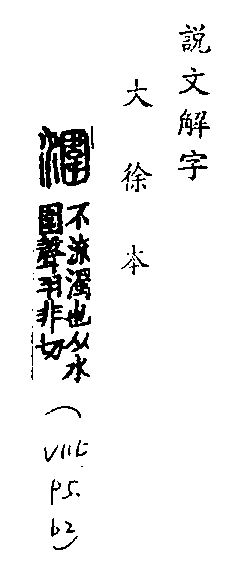 説文解字
大徐本
潿
不流濁也从水
圍聲羽非切
(
p5.
b2)